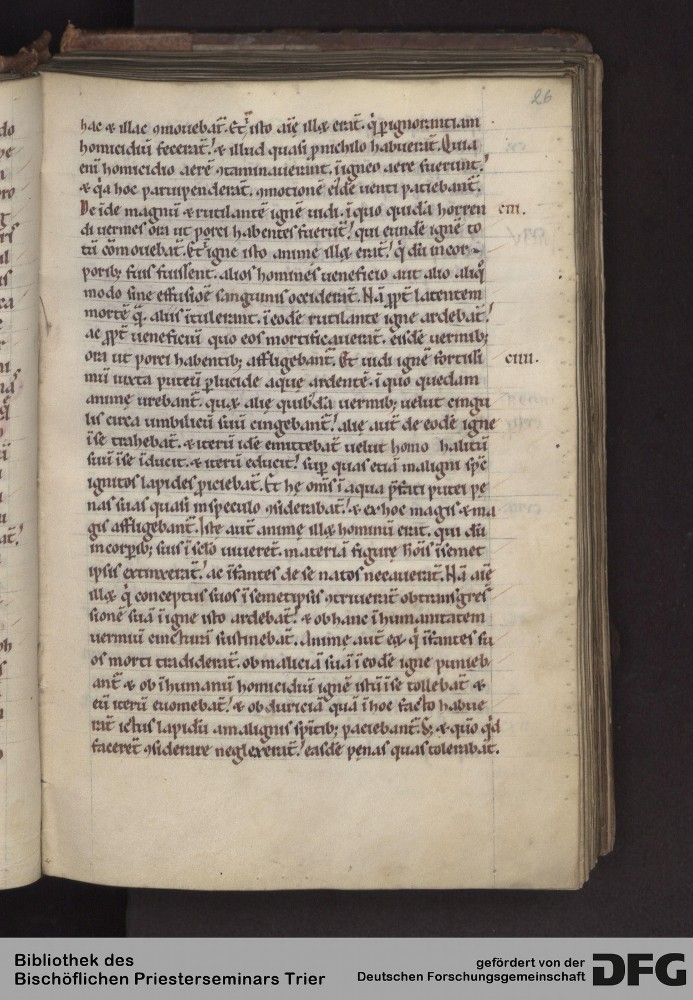 26
hac & illac ↄmouebāt̄. Et ī isto aīe illę erāt̄. q̄ p̱ ignorantiam
homicidiū fecerāt̄. & illud quasi ꝓ nichilo habuerāt̄. Quia
enī homicidio aerē ↄtaminauerant. ī igneo aere fuerunt.
& q̇a hoc paruipenderāt̄. ↄmotionē eīdē uenti paciebant̄.
De īde magnū & rutilantē ignē uidi. ī quo quidā horren
ciii.
di uermes ora ut porci habentes fuerūt̄. qui eundē ignē to
tū cōmouebāt̄. Et ī igne isto anime illę erāt̄. q̄ dū in cor-
porib; suis fuissent. alios homines ueneficio aut alio aliq̊
modo sine effusiōe sanguinis occiderāt̄. Nā ꝓpt̄ latentem
mortē q̄. aliis ītulerunt. ī eodē rutilante igne ardebāt̄.
ac ꝓpt̄ ueneficiū quo eos mortificauerāt̄. eisdē uermib;
ora ut porci habentib; affligebant̄. Et uidi ignē fortissi
ciiii.
mū iuxta puteū p̱lucide aquę ardentē. ī quo quedam
animę urebant̄. quarū alię quib'dā uermib; uelut cingu
lis circa umbilicū suū cingebant̄. alię aut̄ de eodē igne
ī se trahebāt̄. & iterū īde emittebāt̄ uelut homo halitū
suū ī se īducit. & iterū educit. sup̱ quas etiā maligni sp̄c
ignitos lapides ꝓiciebāt̄. Et hę om̄s ī aqua p̄fati putei pe
nas suas quasi in speculo ↄsiderabāt̄. & ex hoc magis & ma
gis affligebant̄. Iste aut̄ animę illę hominū erāt̄. qui dū
in corp̱ib; suis ī sc̄lo uiuerent. materiā figurę hoīs ī semet
ipsis extinxerāt̄. ac īfantes de se natos necauerāt̄. Nā aīe
illę q̄ conceptus suos ī semetipsis ↄtriuerāt̄ ob transgres
sionē suā ī igne isto ardebāt̄. & ob hanc īhumanitatem
uermiū cincturā sustinebāt̄. Animę aut̄ eę q̄ īfantes su
os morti tradiderāt̄. ob maliciā suā ī eodē igne punieb
ant̄ & ob īhumanū homicidiū ignē istū ī se tollebāt̄ &
eū iterū euomebāt̄. & ob duriciā quā ī hoc facto habue
rāt̄ ictus lapidū a malignis sp̄itib; paciebant̄. S; & quō q̇d
facerēt̄ ↄsiderare neglexerāt̄. easdē penas quas tolerabāt̄.
Bibliothek des
Bischöflichen Priesterseminars Trier
gefördert von der
Deutschen Forschungsgemeinschaft
DFG